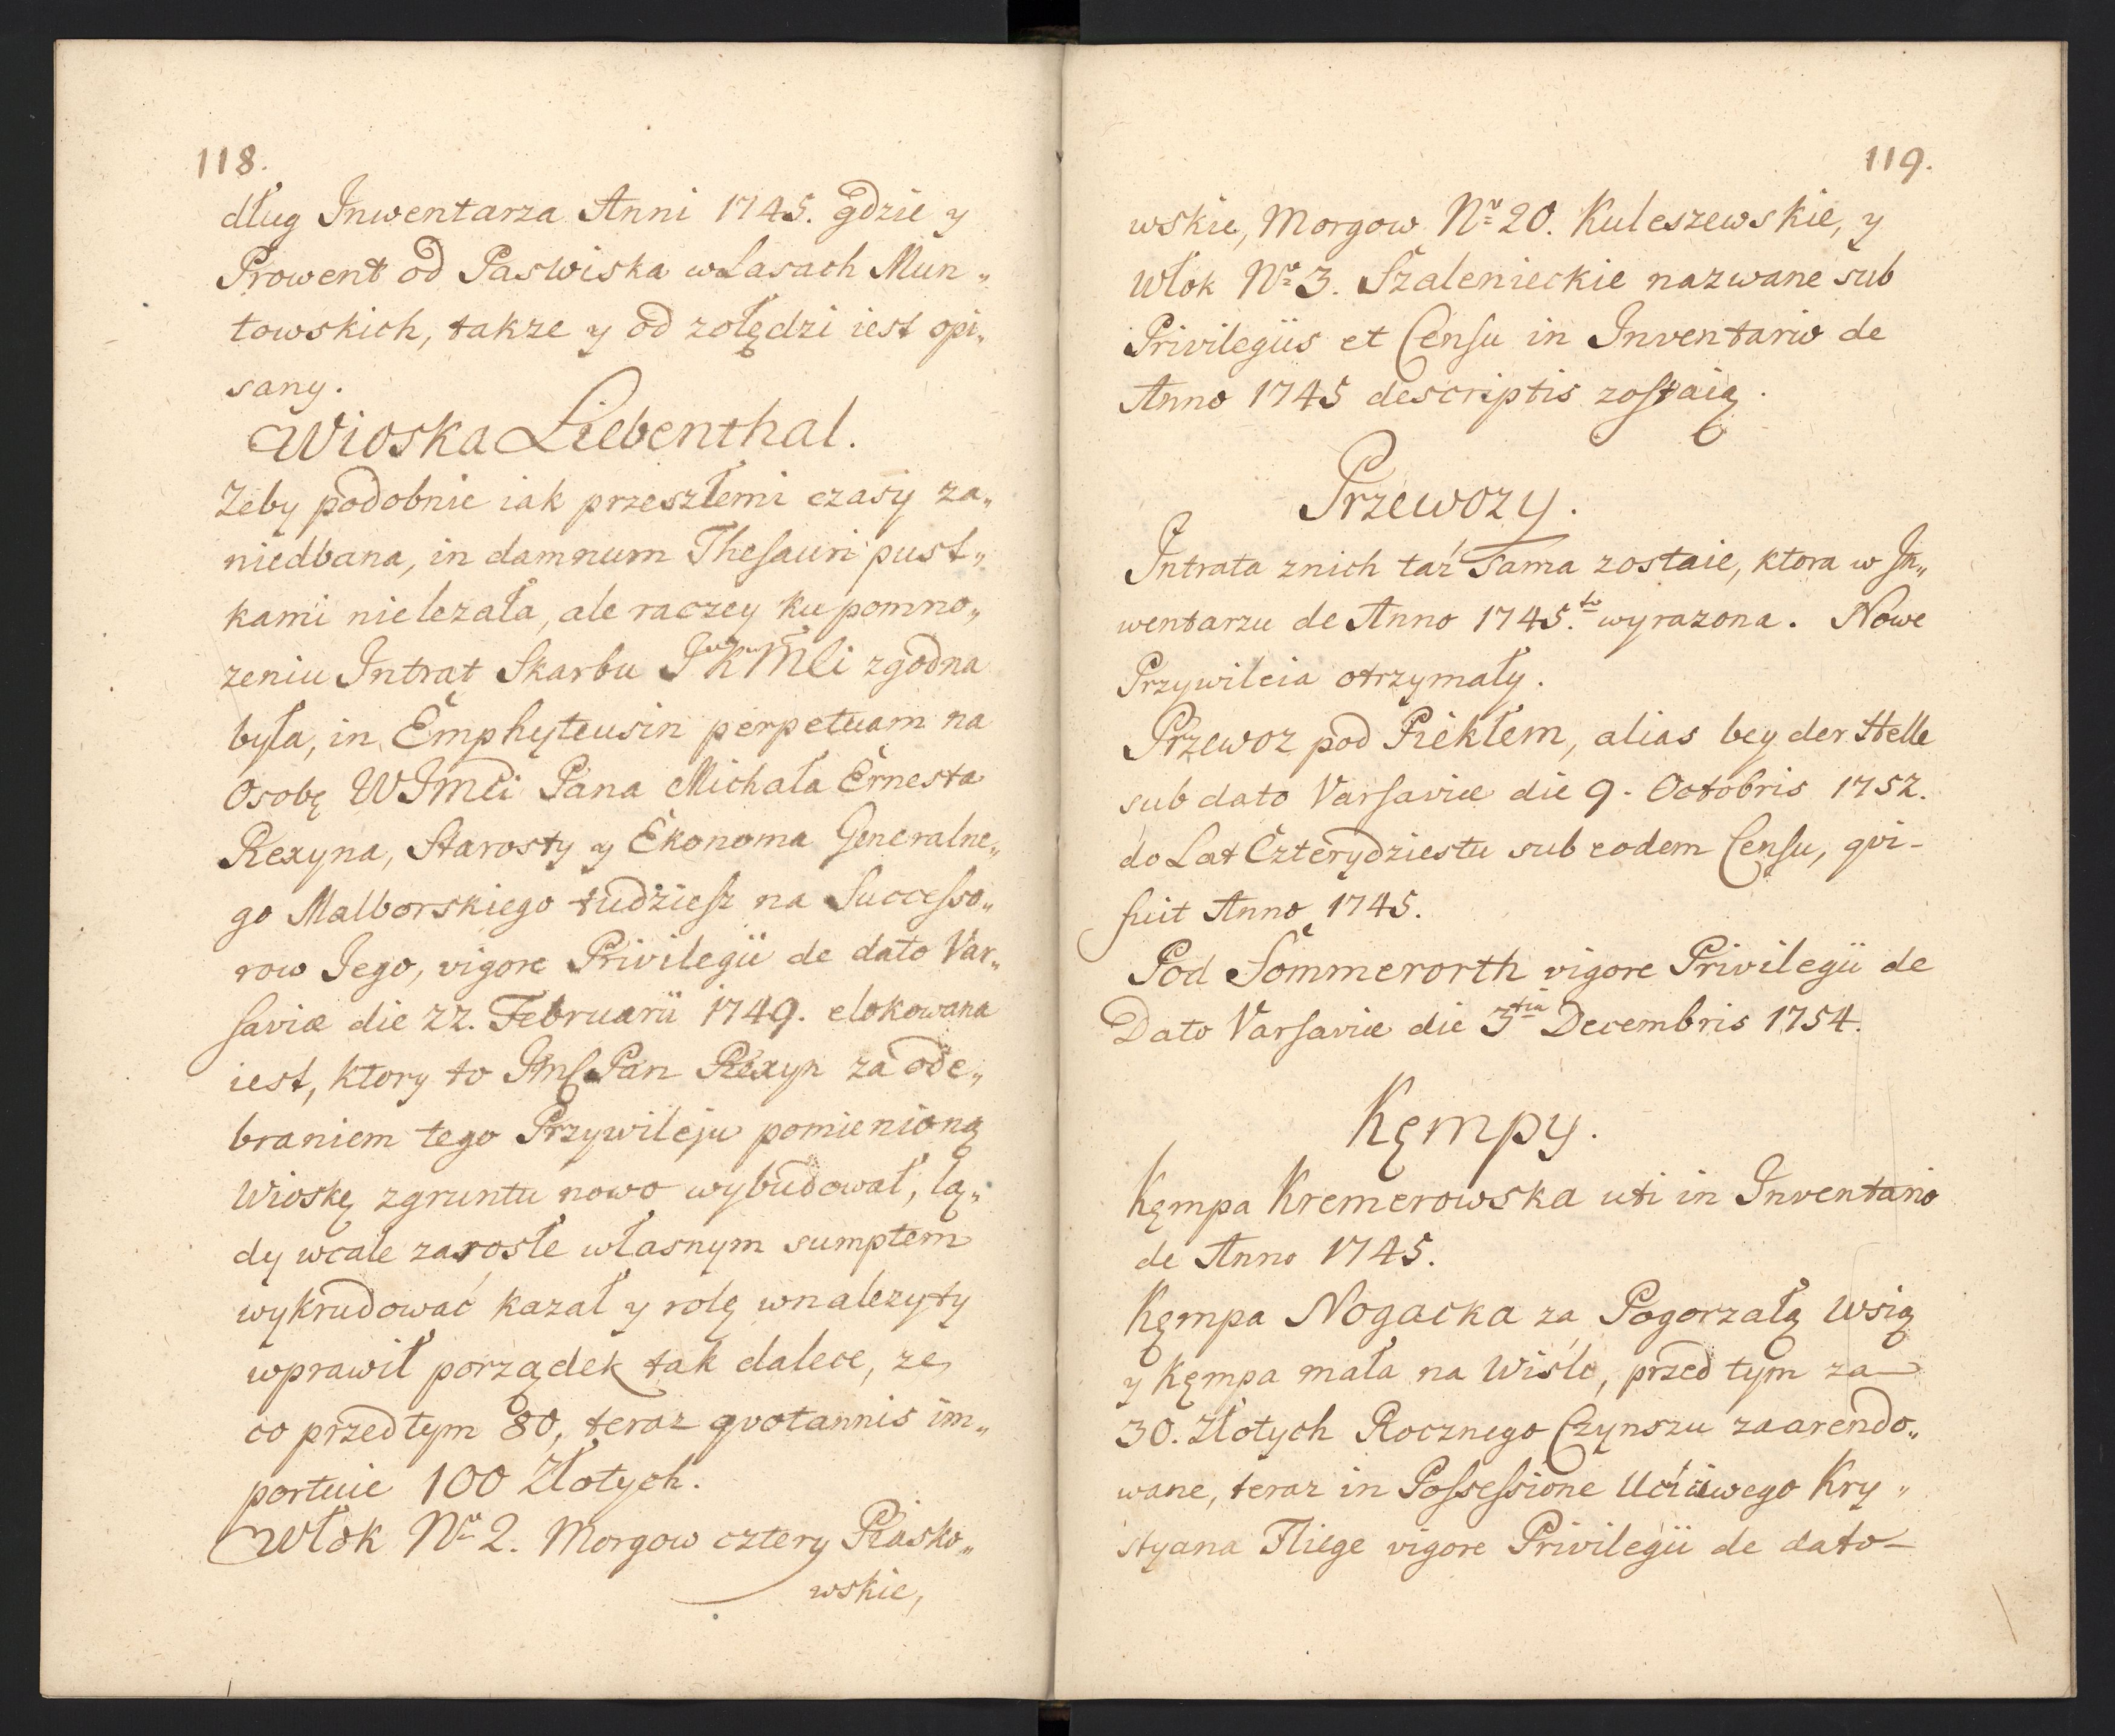 118.
dług Inwentarza Anni 1745. gdzie y
Prowent od Paswiska w Lasach Mun„
towskich, takze y od zołędzi iest opi„
sany.
Wioska Liebenthal.
Zeby podobnie iak przeszłemi czasy za„
niedbana, in damnum Thesauri pust„
kami nielezała, ale raczey ku pomno„
zeniu Intrat Skarbu JKMCi zgodna
była, in Emphyteusin perpetuam na
Osobę WJMCi Pana Michała Ernesta
Rexyna, Starosty y Ekonoma Generalne„
go Malborskiego tudziesz na Successo„
row Jego, vigore Privilegii de dato Var„
saviæ die 22. Februarii 1749. elokowana
iest, ktory to JmC Pan Rexyn za ode„
braniem tego Przywileju pomienioną
Wioskę zgruntu nowo wybudował, lą„
dy wcale zarosłe własnym sumptem
wykrudować kazał y rolę wnalezyty
wprawił porządek tak dalece, ze
co przedtym 80, teraz qvotannis im„
portuie 100 Złotych.
Włok No 2. Morgow cztery Piasko„
wskie,
119.
wskie, Morgow No 20. Kuleszewskie, y
Włok No 3. Szalenieckie nazwane sub
Privilegiis et Censu in Inventario de
Anno 1745 descriptis zostaią.
Przewozy.
Intrata znich taż sama zostaie, ktora w In„
wentarzu de Anno 1745.to wyrazona. Nowe
Przywileia otrzymały.
Przewoz pod Piekłem, alias bey der Helle
sub dato Varsaviæ die 9. Octobris 1752.
do Lat Czterydziestu sub eodem Censu, qvi-
fuit Anno 1745.
Pod Sommerorth vigore Privilegii de
Dato Varsaviæ die 3tia Decembris 1754.
Kępmy.
Kęmpa Kremerowska uti in Inventario
de Anno 1745.
Kęmpa Nogacka za Pogorzałą Wsią
y Kęmpa mała na Wiśle, przed tym za
30. Złotych Rocznego Czynszu zaarendo„
wane, teraz in Possessione Ucciwego Kry„
styana Fliege vigore Privilegii de dato